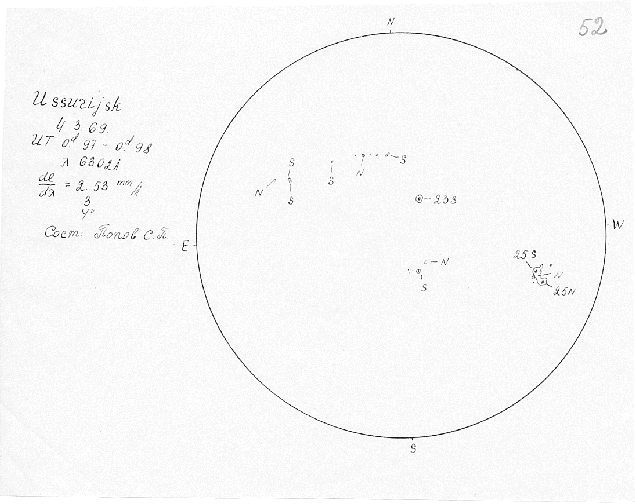 52
N
Ussurijsk
4 3 69.
UT 0ᵈ 97 - 0ᵈ 98
λ 6302Å
de/dλ = 2.53 mm/Å
3
4"
Сост. Попов С.П.
E
W
S
N
S
S
S
N
S
23S
N
S
25S
N
25N